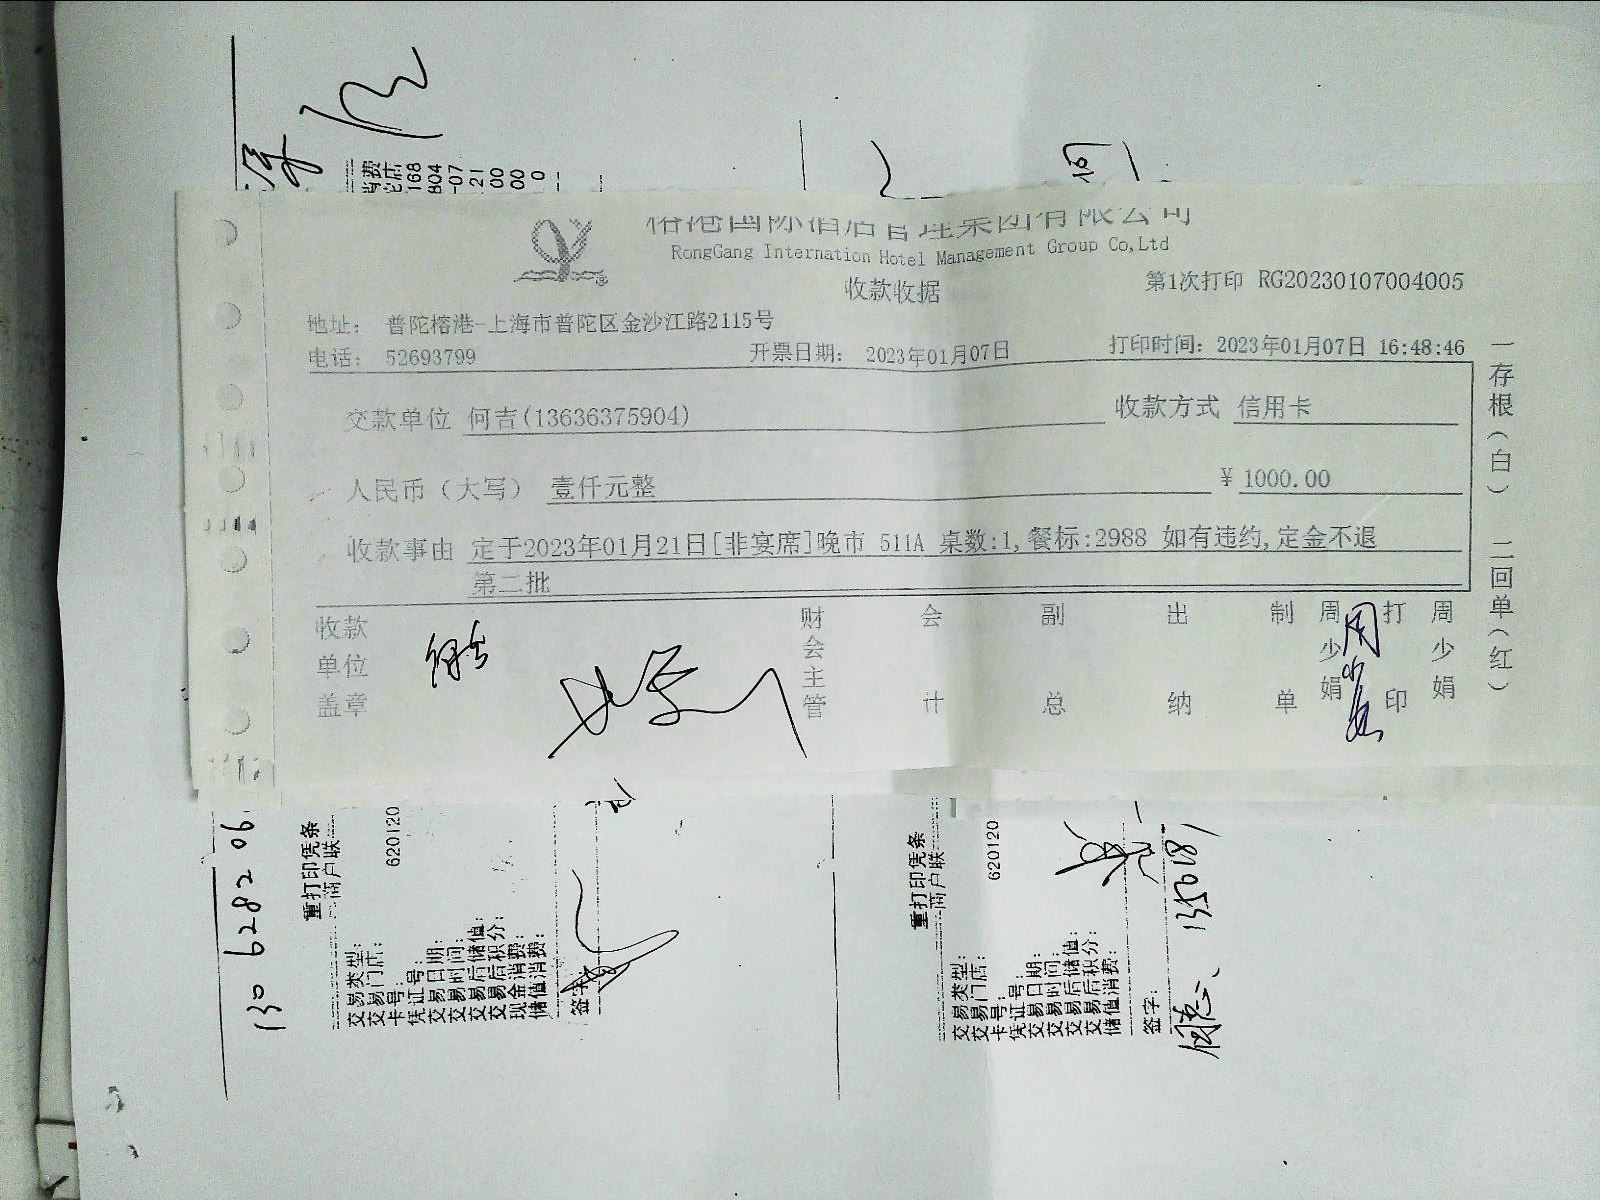 榕港国际酒店管理集团有限公司
RongGang International Hotel Management Group Co,Ltd
收款收据
第1次打印 RG20230107004005
地址： 普陀榕港-上海市普陀区金沙江路2115号
电话： 52693799 开票日期： 2023年01月07日 打印时间：2023年01月07日 16:48:46
交款单位 何吉(13636375904) 收款方式 信用卡
人民币（大写） 壹仟元整 ￥ 1000.00
收款事由 定于2023年01月21日[非宴席]晚市 511A 桌数:1,餐标:2988 如有违约,定金不退
第二批
收款单位盖章 财会主管 会计 副总 出纳 制单 周少娟 打印 周少娟
一存根（白） 二回单（红）
168
804
-07
21
00
00
0
130 6282 06
重打印凭条
商户联
620120
交易类型：
交易门店：
卡号：
凭证号：
交易日期：
交易时间：
交易后储值：
交易后积分：
现金消费：
储值消费：
签字
重打印凭条
商户联
620120
交易类型：
交易门店：
卡号：
凭证号：
交易日期：
交易时间：
交易后储值：
交易后积分：
储值消费：
签字：